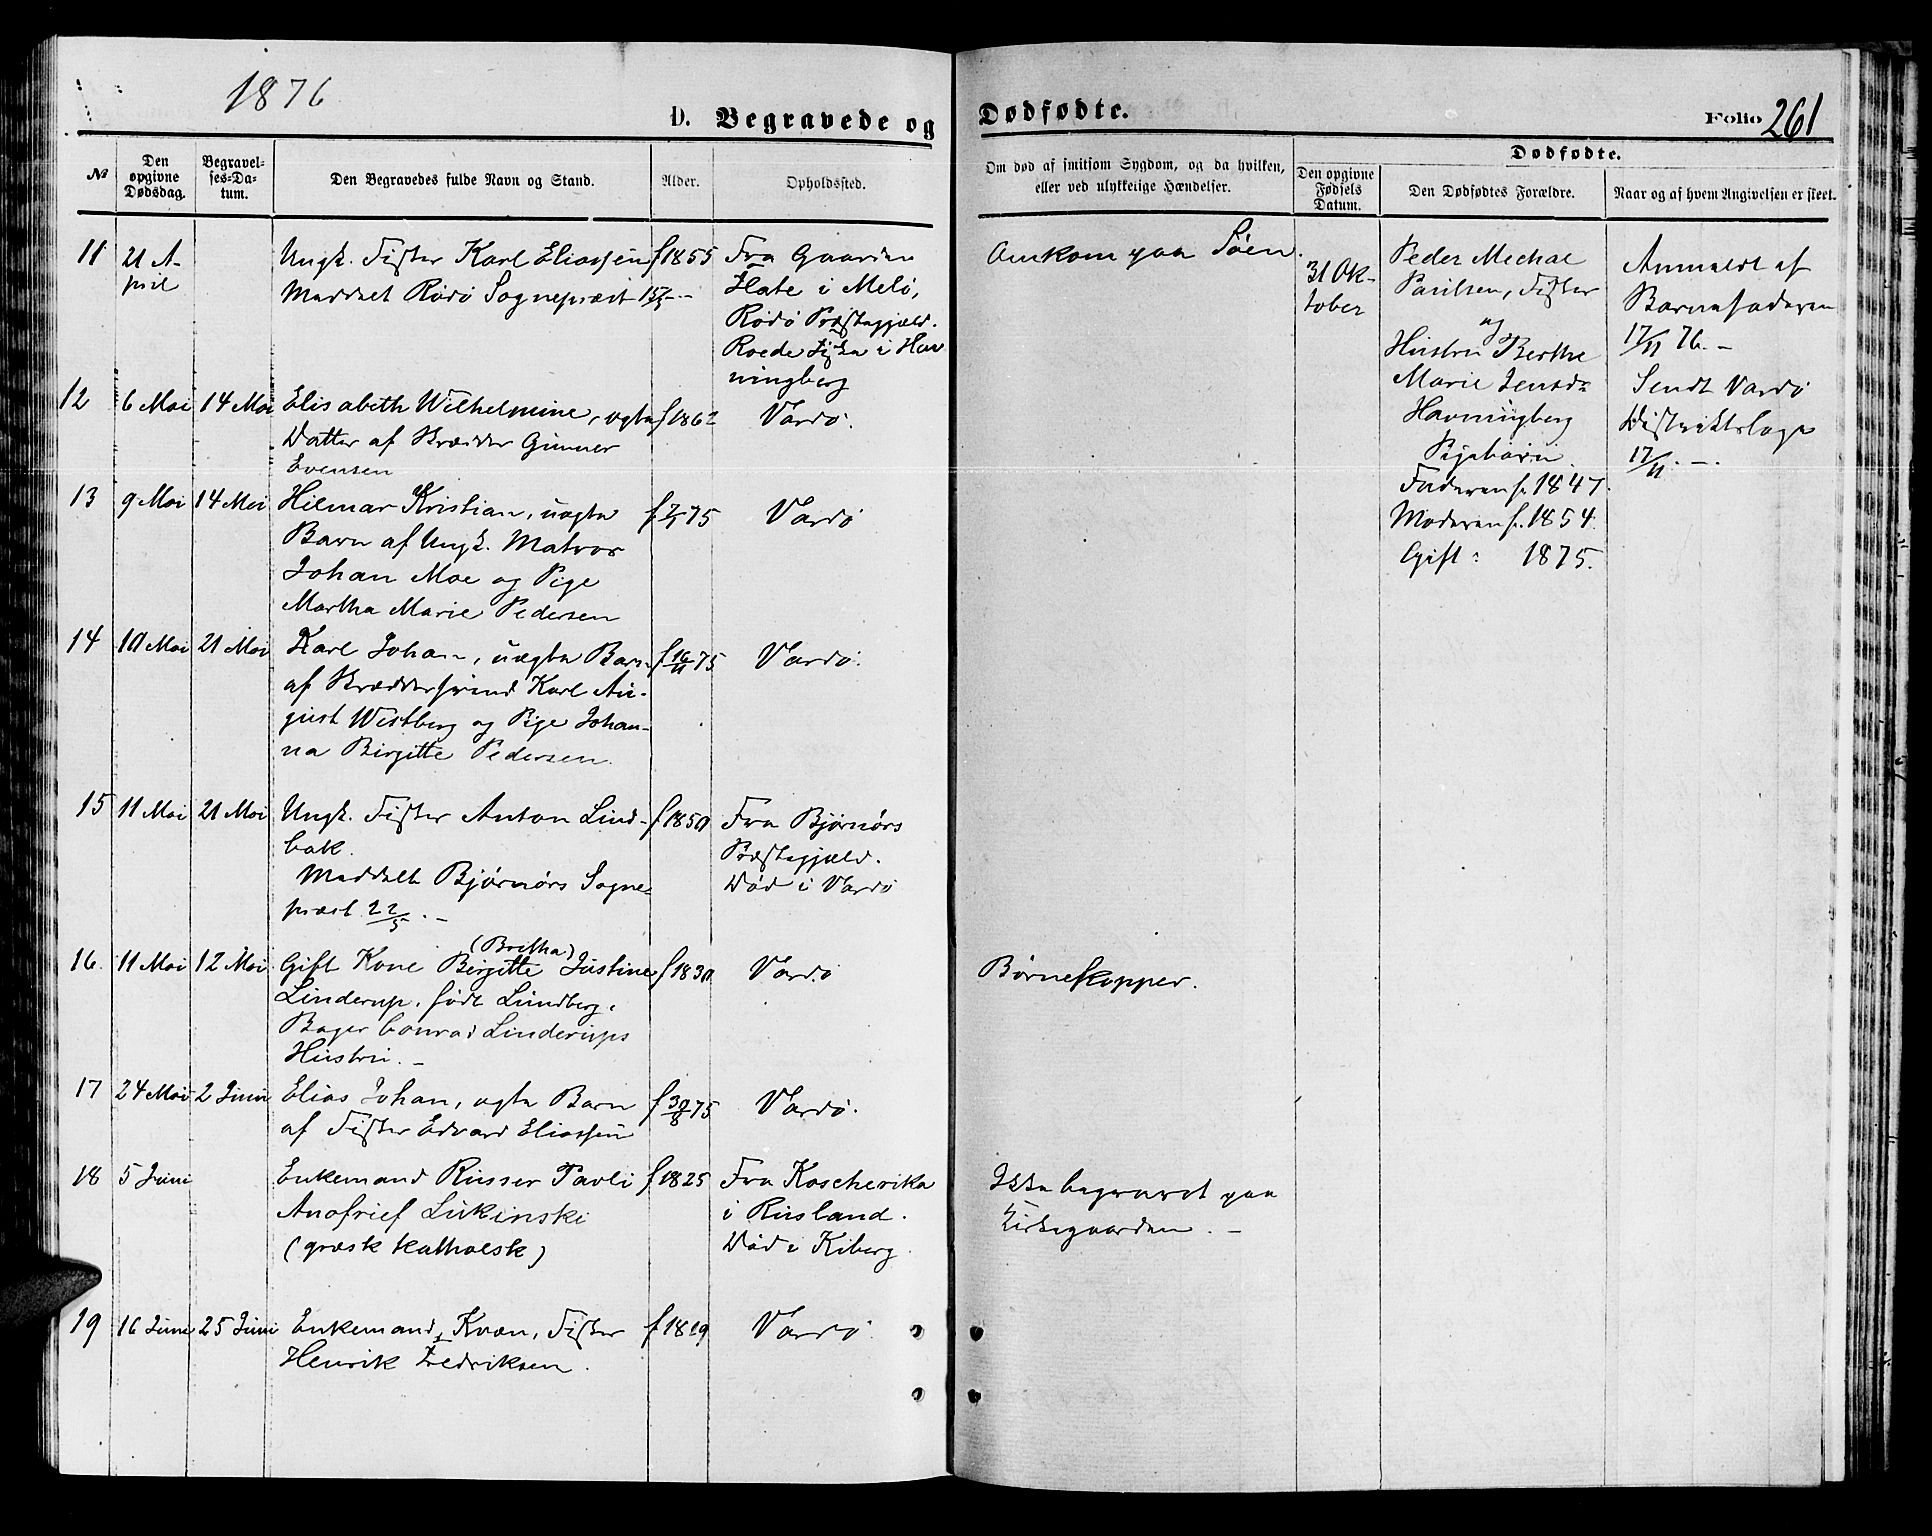 1876
D. Begravede og Dødfødte.
Folio 261
№
Den opgivne Dødsdag.
Begravelses-Datum.
Den Begravedes fulde Navn og Stand.
Alder.
Opholdssted.
Om død af smitsom Sygdom, og da hvilken,
eller ved ulykkelige Hændelser.
Dødfødte.
Den opgivne Fødsels Datum.
Den Dødfødtes Forældre.
Naar og af hvem Angivelsen er skeet.
11
21 A-
pril
Ungk. Fisker Karl Eliassen
Meddelt Rødø Sognepræst 15/5 --
f 1855
Fra Gaarden
Flate i Melö,
Rödö Præstegjæld.
Roede Fiske i Hav
ningberg
Omkom paa Søen.
12
6 Mai
14 Mai
Elisabeth Wilhelmine, ægte
Datter af Skrædder Gunner
Evensen
f 1862
Vardö.
13
9 Mai
14 Mai
Hilmar Kristian, uægte
Barn af Ungk. Matros
Johan Moe og Pige
Martha Marie Pedersen
f 75
Vardö
14
10 Mai
21 Mai
Karl Johan, uægte Barn
af Skræddersvend Karl Au-
gust Westberg og Pige Johan-
na Birgitte Pedersen.
f 16/11 75
Vardö.
15
11 Mai
21 Mai
Ungk. Fisker Anton Lind-
bak.
Meddelt Bjørnørs Sogne-
præst 22/5. -
f 1850
Fra Bjørnørs
Præstegjæld.
Död i Vardö
16.
11 Mai
12 Mai
(Bretha)
Gift Kone Birgitte Justine
Linderup, født Lundberg,
Bager Conrad Linderups
Hustru. -
f 1830
Vardö
Børnekopper.
17
24 Mai
2 Juni
Elias Johan, ægte Barn
af Fisker Edvard Eliassen
f 30/8 75
Vardö.
18
5 Juni
Enkemand Russer Pavli
Anofrief Lukinski
(græsk katholsk)
f 1825
Fra Koscherika
i Rusland.
Död i Kiberg.
Ikke begravet paa
Kirkegaarden. -
19
16 Juni
25 Juni
Enkemand, Kvæn, Fisker
Henrik Fredriksen.
f 1819
Vardö.
31 Ok-
tober
Peder Mechal
Paulsen, Fisker
og
Hustru Berthe
Marie Jensdr
Havningberg
Pigebarn.
Faderen f. 1847.
Moderen f. 1854.
Gift: 1875.
Anmeldt af
Barnefaderen
17/11 76. -
Sendt Vardö
Distriktslæge
17/11. -.